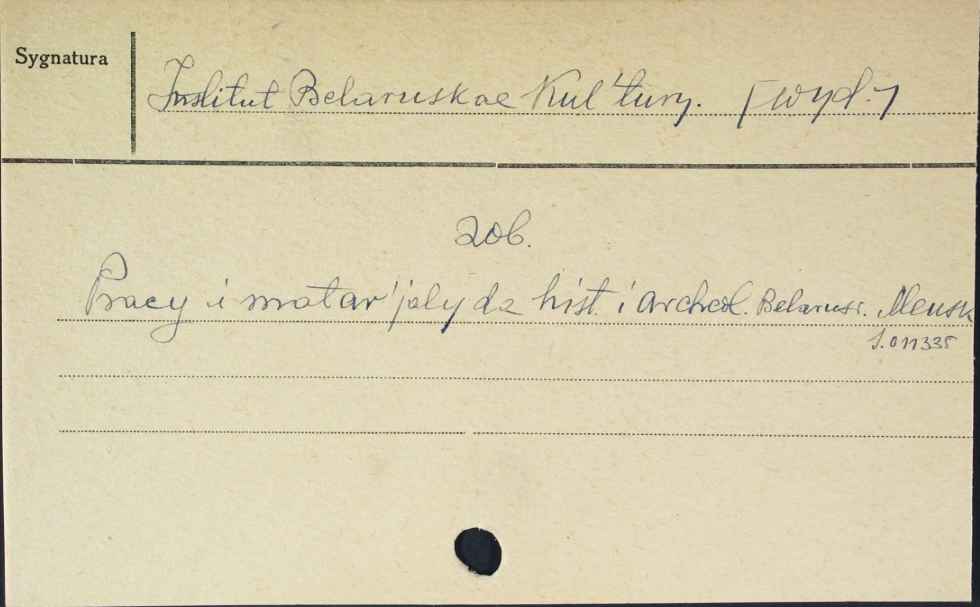 Sygnatura
Institut Belaruskae Kul'tury. [wyd.]
zob.
Pracy i matar'jaly da hist. i archeol. Belarusi. Mensk
S.011335